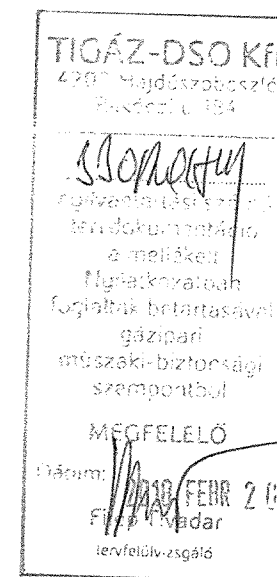 TIGÁZ-DSO Kf
4200 Hajdúszoboszló
u. 184
nyilvántartási számú
tervdokumentáció
a mellékelt
Nyilatkozatban
foglaltak betartásával
gázipari
műszaki-biztonsági
szempontból
MEGFELELŐ
Dátum: FEBR 2
Tivadar
tervfelülvizsgáló